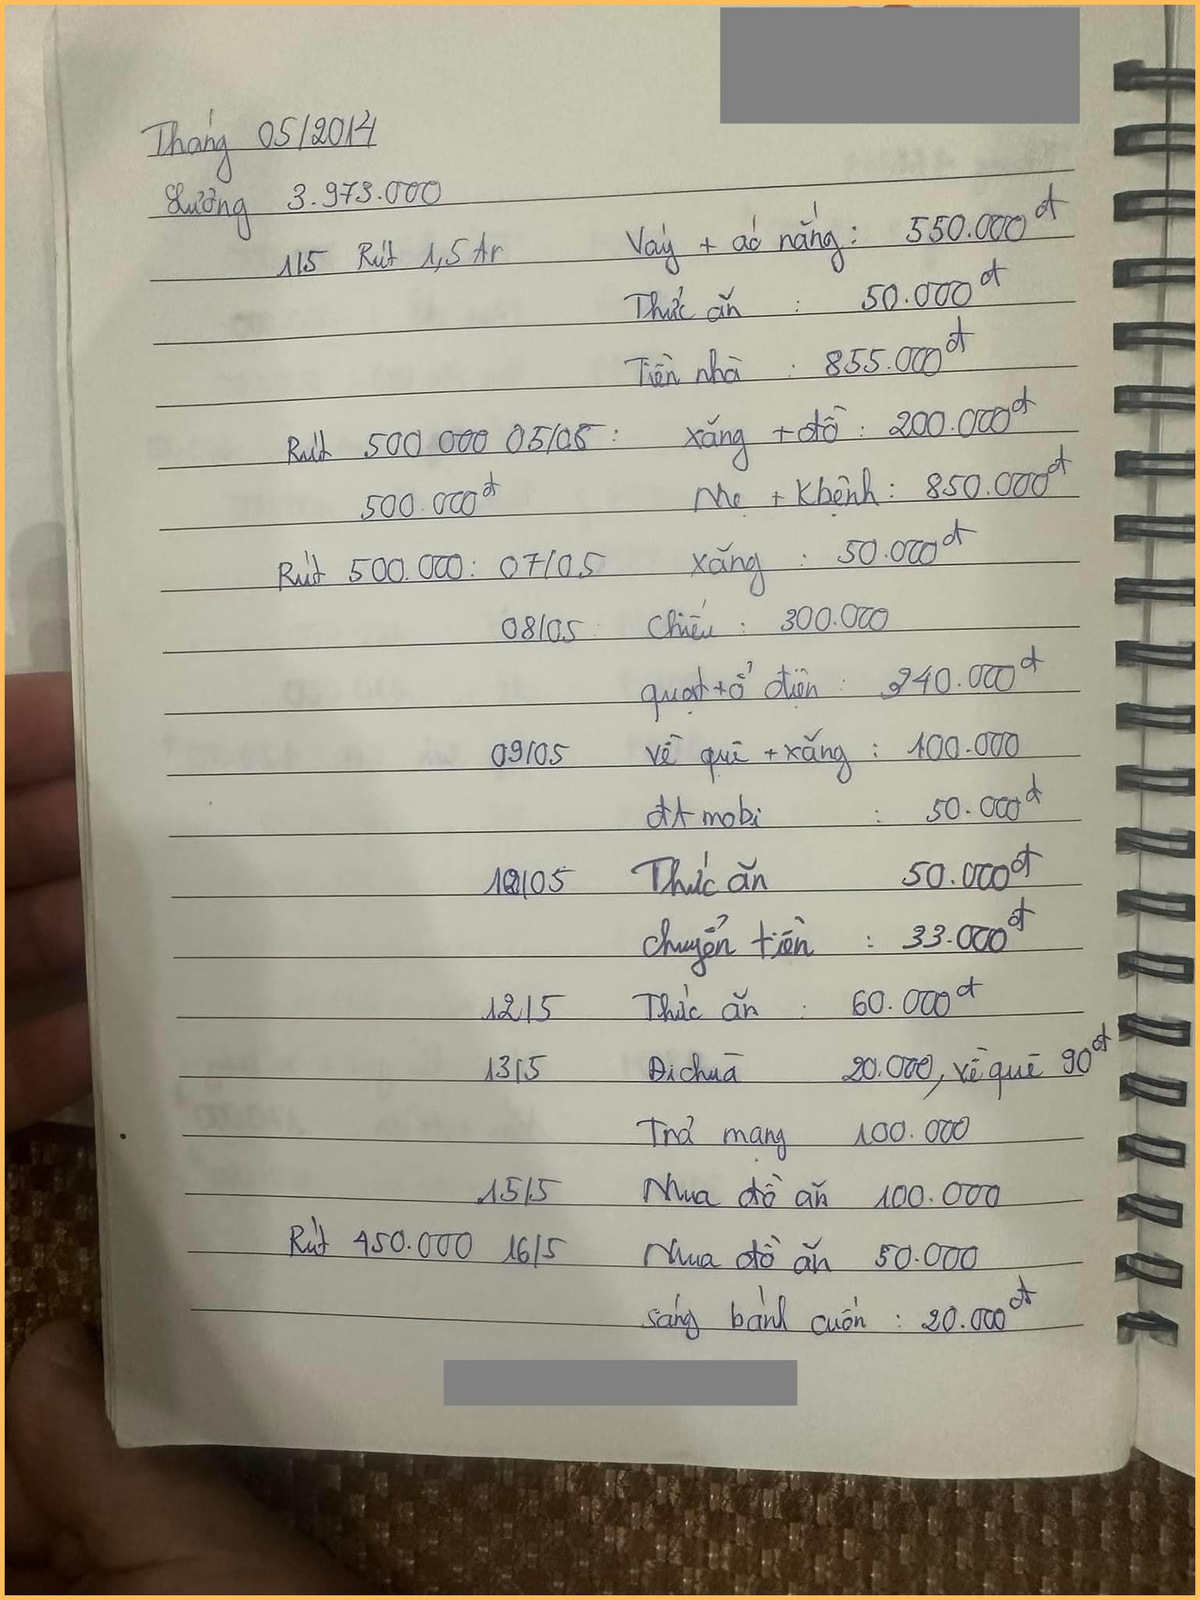 Tháng 05/2014
Lương 3.973.000
1/5 Rút 1,5 Tr Váy + áo nắng: 550.000đ
Thức ăn : 50.000đ
Tiền nhà : 855.000đ
Rút 500 000 05/05: xăng + đồ : 200.000đ
500.000đ Mẹ + Kbệnh: 850.000đ
Rút 500.000: 07/05 xăng : 50.000đ
08/05 chiếu : 300.000
quạt + ổ điện : 240.000đ
09/05 về quê + xăng : 100.000
đt mobi : 50.000đ
/05 Thức ăn 50.000đ
chuyển tiền : 33.000đ
12/5 Thức ăn : 60.000đ
13/5 Đi chùa 20.000, về quê 90đ
Trả mạng 100.000
15/5 Mua đồ ăn 100.000
Rút 450.000 16/5 Mua đồ ăn 50.000
sáng bánh cuốn : 20.000đ